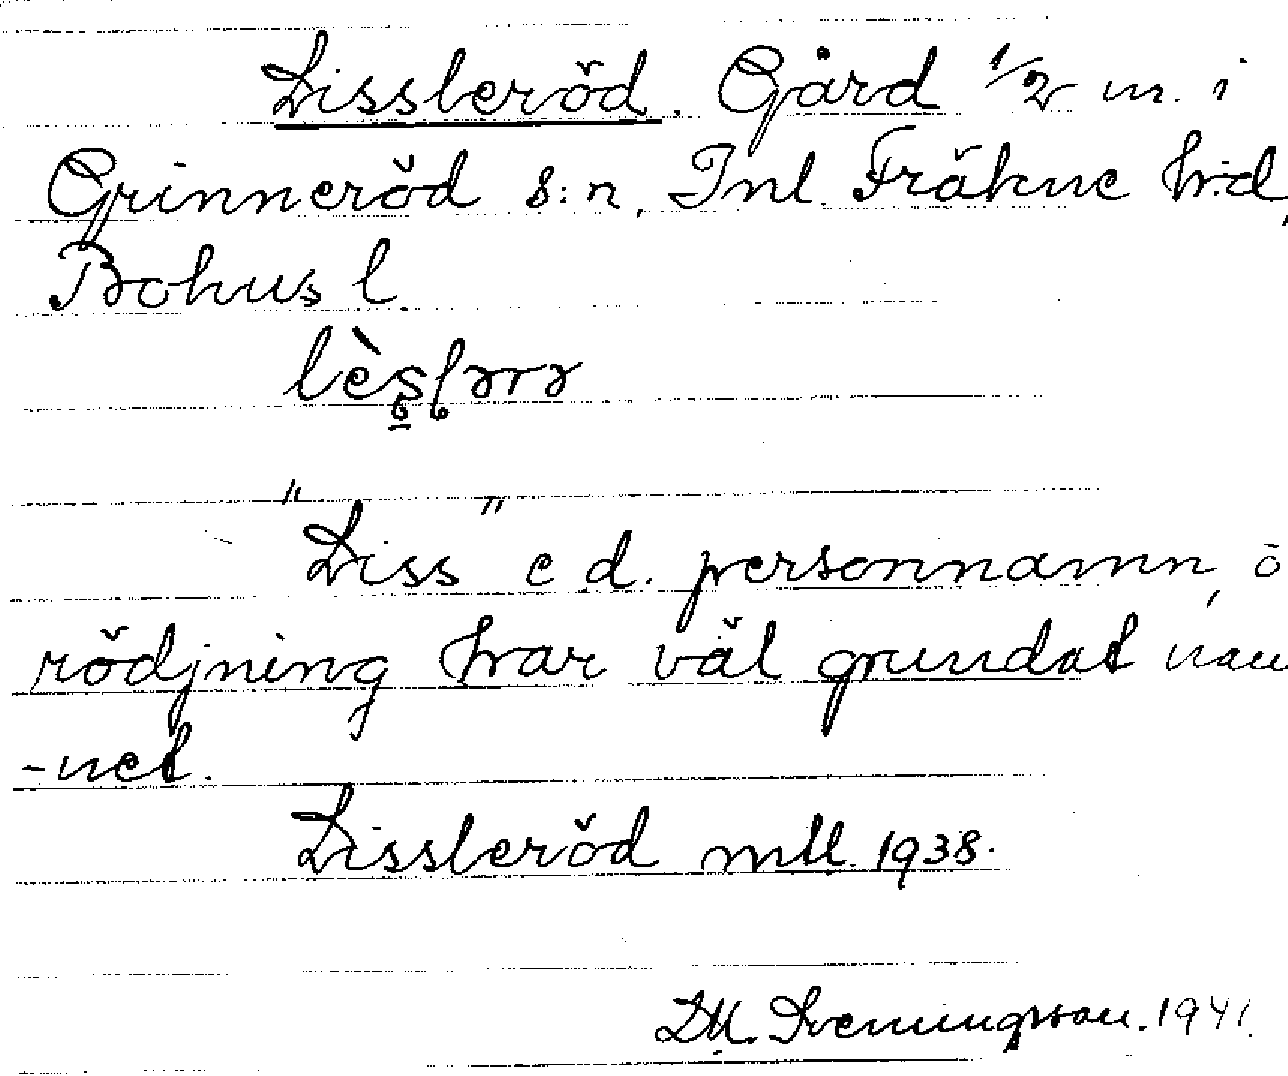 Lissleröd. Gård 1/2 m. i
Grinneröd s:n, Inl. Fräkne h:d,
Bohus l.
"Liss" e d. personnamn, o
rödjning har väl grundat nam
-net.
Lissleröd mtl. 1938.
D.M. Sveningsson. 1941.